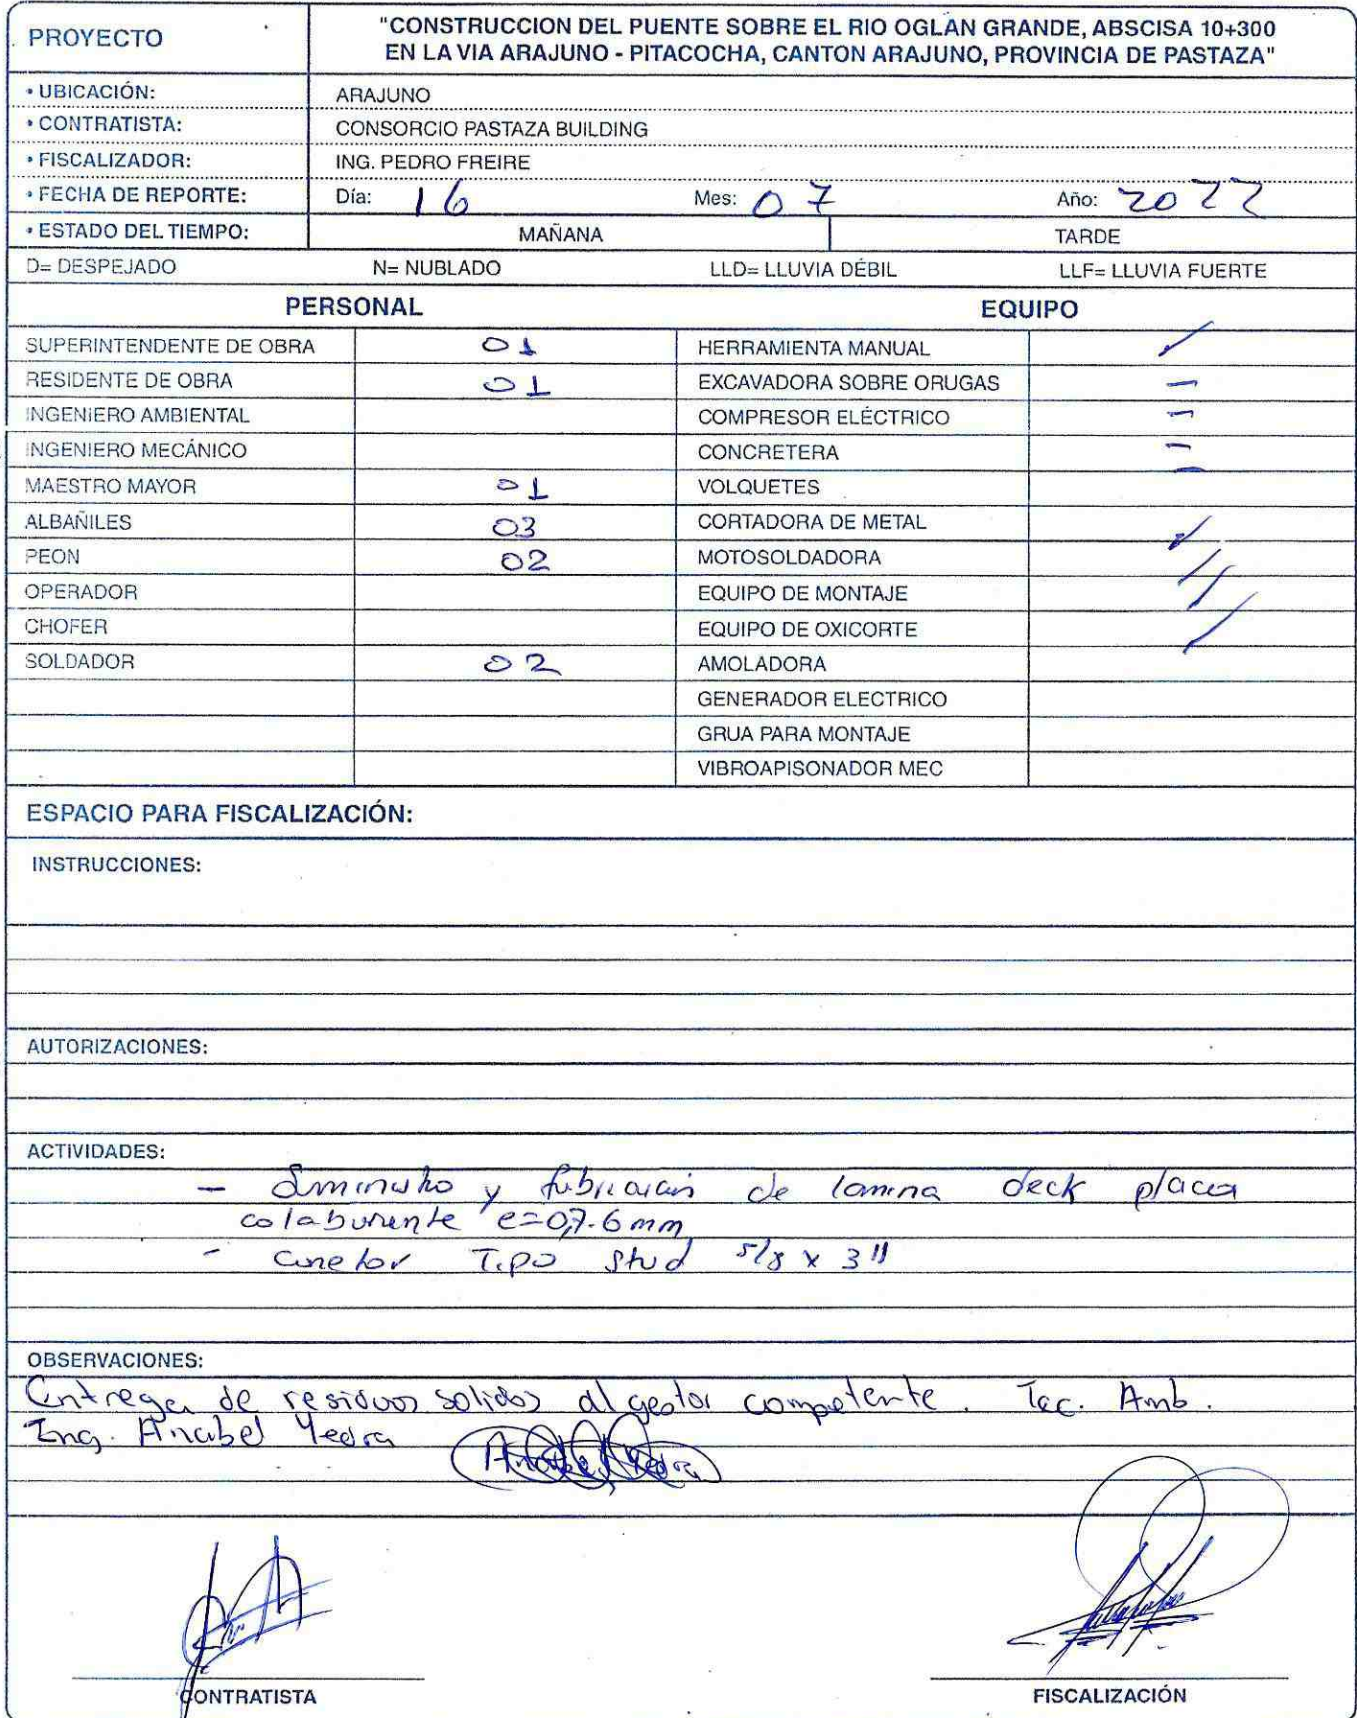 PROYECTO
"CONSTRUCCION DEL PUENTE SOBRE EL RIO OGLAN GRANDE, ABSCISA 10+300
EN LA VIA ARAJUNO - PITACOCHA, CANTON ARAJUNO, PROVINCIA DE PASTAZA"
• UBICACIÓN: ARAJUNO
• CONTRATISTA: CONSORCIO PASTAZA BUILDING
• FISCALIZADOR: ING. PEDRO FREIRE
• FECHA DE REPORTE: Día: 16 Mes: 07 Año: 2022
• ESTADO DEL TIEMPO: MAÑANA TARDE
D= DESPEJADO N= NUBLADO LLD= LLUVIA DÉBIL LLF= LLUVIA FUERTE
PERSONAL EQUIPO
SUPERINTENDENTE DE OBRA 01 HERRAMIENTA MANUAL ✓
RESIDENTE DE OBRA 01 EXCAVADORA SOBRE ORUGAS –
INGENIERO AMBIENTAL COMPRESOR ELÉCTRICO –
INGENIERO MECÁNICO CONCRETERA –
MAESTRO MAYOR 01 VOLQUETES –
ALBAÑILES 03 CORTADORA DE METAL ✓
PEON 02 MOTOSOLDADORA ✓
OPERADOR EQUIPO DE MONTAJE ✓
CHOFER EQUIPO DE OXICORTE ✓
SOLDADOR 02 AMOLADORA
GENERADOR ELECTRICO
GRUA PARA MONTAJE
VIBROAPISONADOR MEC
ESPACIO PARA FISCALIZACIÓN:
INSTRUCCIONES:
AUTORIZACIONES:
ACTIVIDADES:
- Suministro y fabricación de lamina deck placa
colaborante e=0,7.6 mm
- Conector Tipo Stud 5/8 x 3"
OBSERVACIONES:
Entrega de residuos solidos al gestor competente. Tec. Amb.
Ing. Anabel Yedra
CONTRATISTA FISCALIZACIÓN